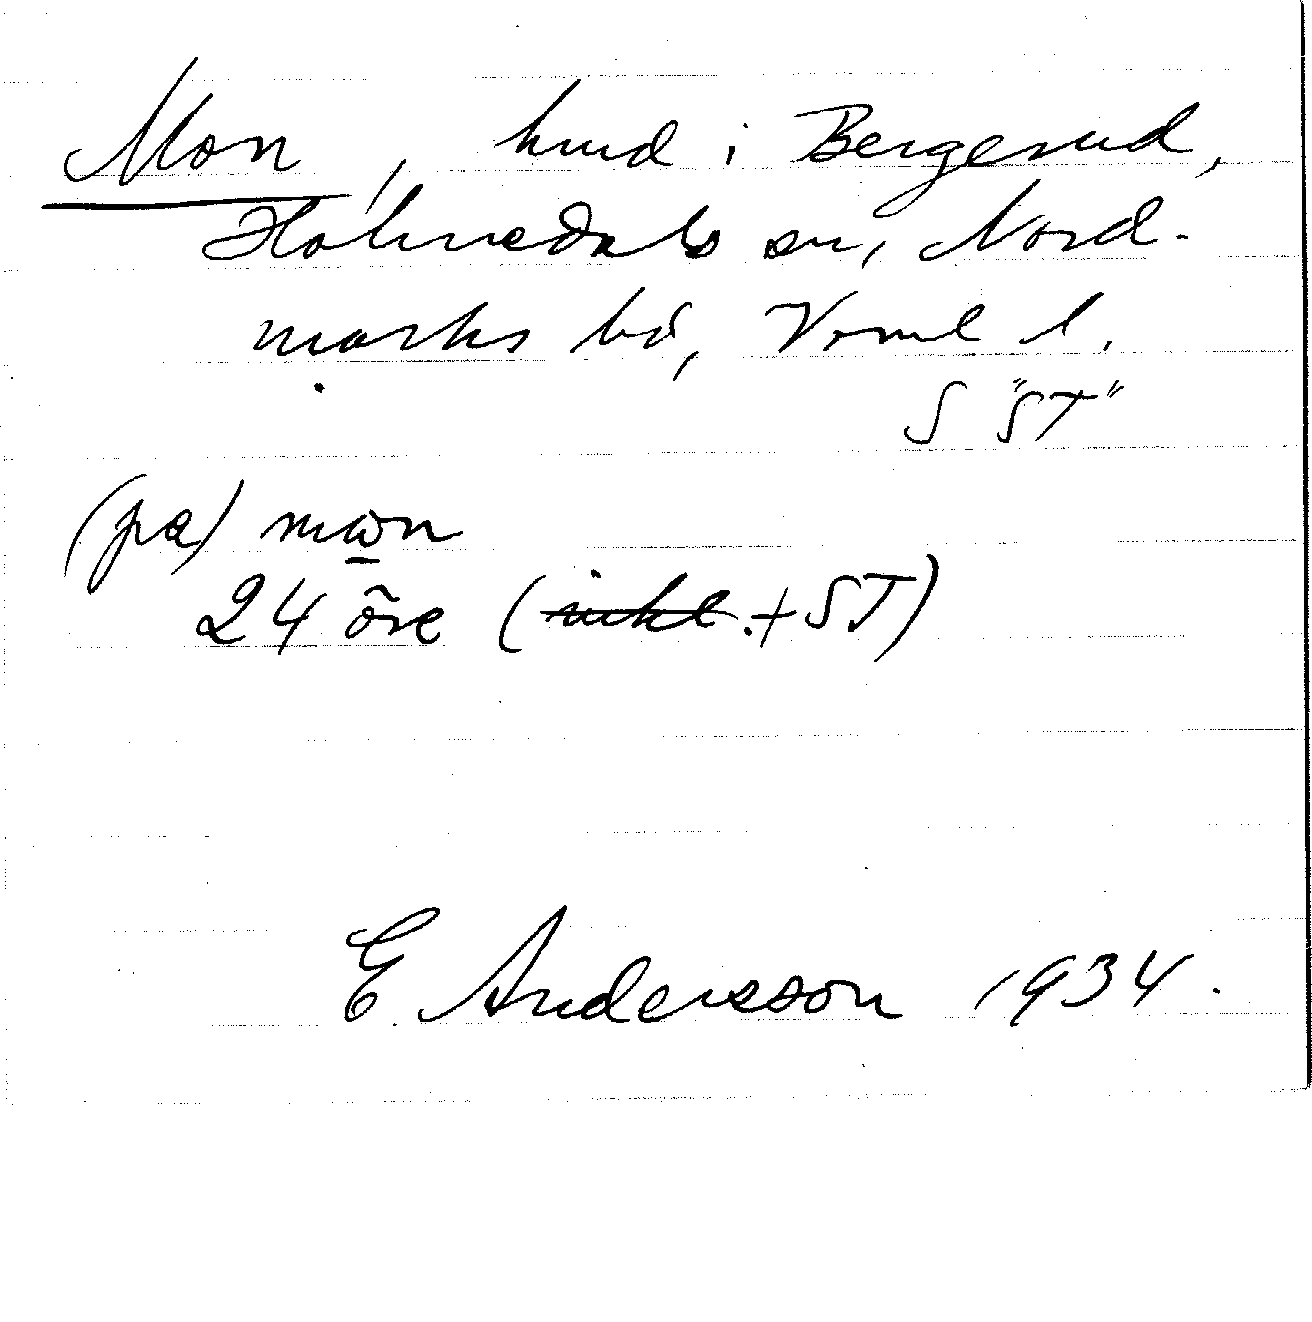 Mon, hmd i Bergerud,
Holmedals sn, Nord-
marks hd, Värml l.
S "ST"
(pa) mωn
24 öre (inkl. + ST)
E Andersson 1934.